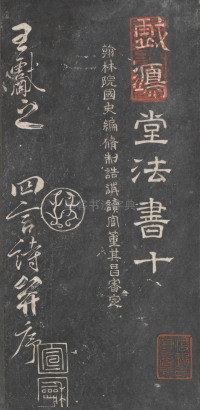 戲鴻堂法書十八
翰林院國史編脩制誥講讀官董其昌審定
王獻之
四言詩并序